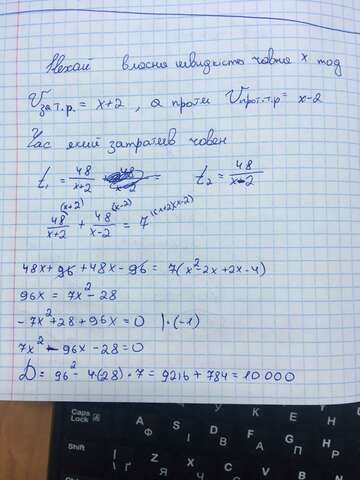 Нехай власна швидкість човна x тод
Vза т.р. = x+2 , а проти Vпрот.т.р = x-2
Час який затратив човен
t₁ = 48/(x+2) = t₂ = 48/(x-2)
48/(x+2) ^(x+2) + 48/(x-2) ^(x-2) = 7 ^(x+2)(x-2)
48x + 96 + 48x - 96 = 7(x² - 2x + 2x - 4)
96x = 7x² - 28
-7x² + 28 + 96x = 0 |·(-1)
7x² - 96x - 28 = 0
D = 96² - 4(28)·7 = 9216 + 784 = 10 000
Caps Lock A S D F G H
Ф І В А П Р
У К Е Н
Shift \ Z X C V B
Ґ Я Ч